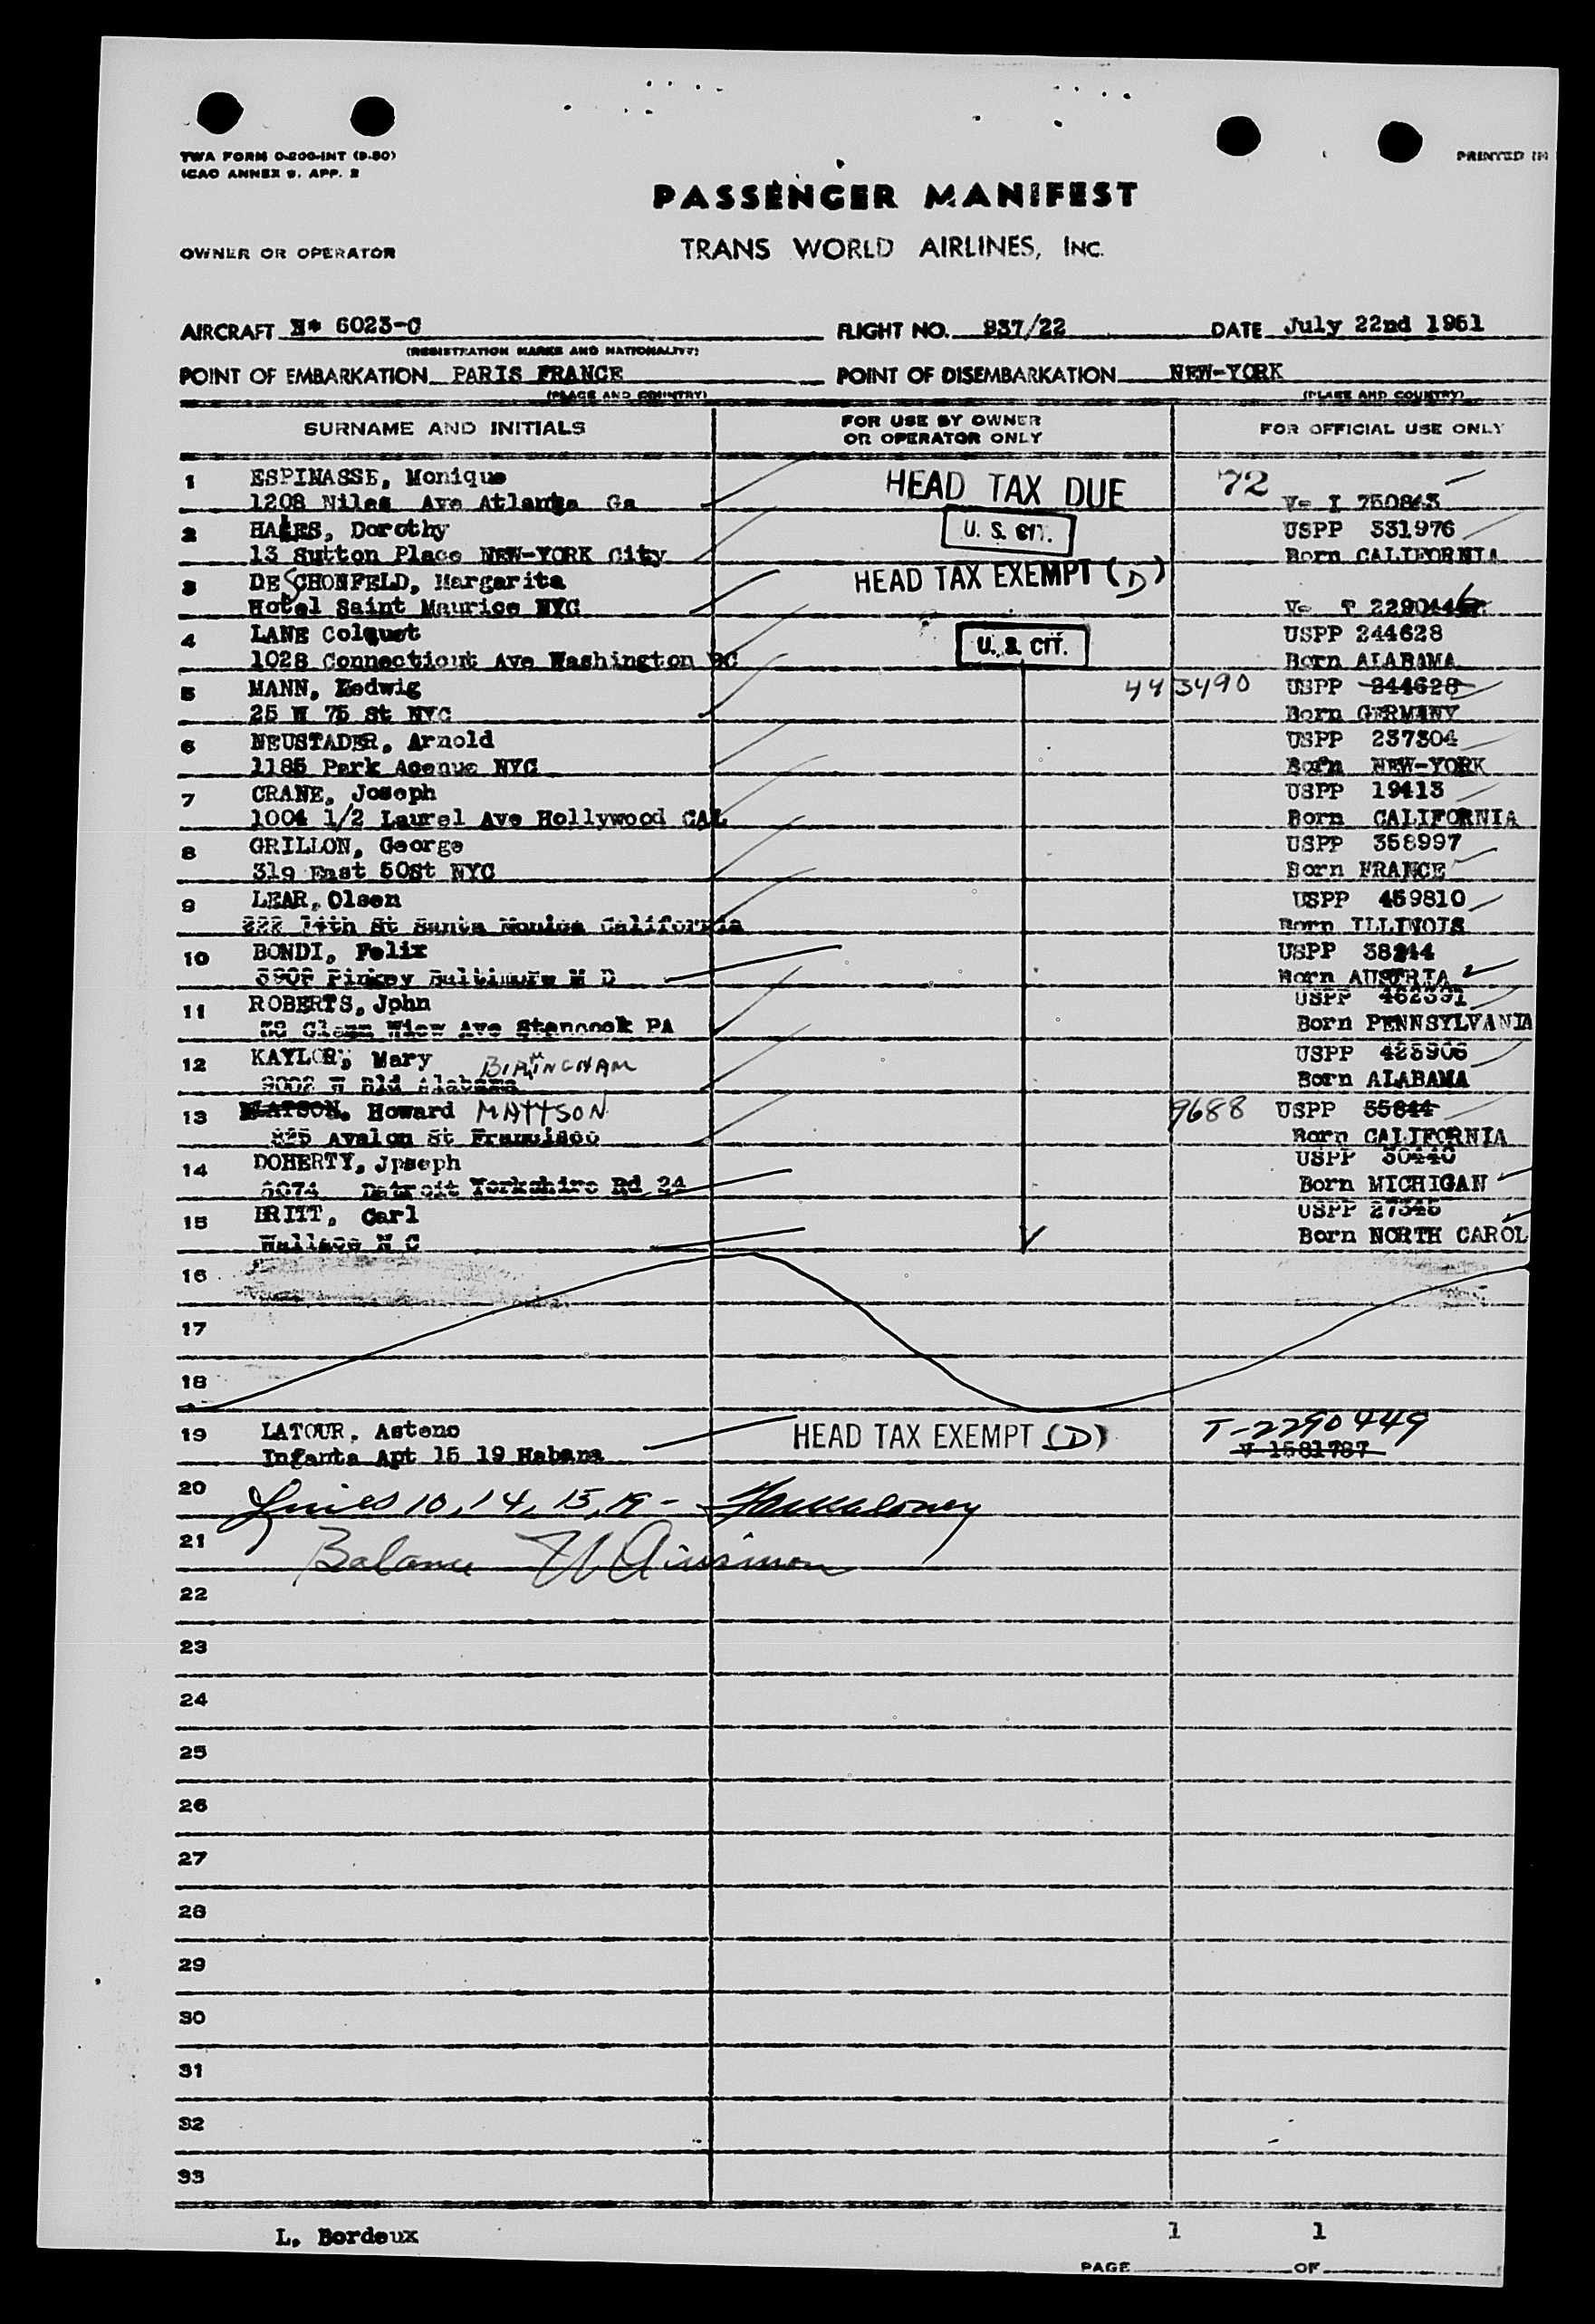 TWA FORM O-200-INT (9-50)
ICAO ANNEX 9. APP. 2
PRINTED IN
PASSENGER MANIFEST
OWNER OR OPERATOR TRANS WORLD AIRLINES, INC.
AIRCRAFT N* 6023-C FLIGHT NO. 937/22 DATE July 22nd 1951
(REGISTRATION MARKS AND NATIONALITY)
POINT OF EMBARKATION PARIS FRANCE POINT OF DISEMBARKATION NEW-YORK
(PLACE AND COUNTRY) (PLACE AND COUNTRY)
SURNAME AND INITIALS FOR USE BY OWNER OR OPERATOR ONLY FOR OFFICIAL USE ONLY
1 ESPINASSE, Monique HEAD TAX DUE 72
1208 Niles Ave Atlanta Ga V- I 750843
2 HALES, Dorothy U. S. CIT. USPP 331976
13 Sutton Place NEW-YORK City Born CALIFORNIA
3 DE SCHONFELD, Margarita HEAD TAX EXEMPT (D)
Hotel Saint Maurice NYC
4 LANE Colquet U. S. CIT. USPP 244628
1028 Connecticut Ave Washington DC Born ALABAMA
5 MANN, Hedwig 443490 USPP 244628
25 W 75 St NYC Born GERMANY
6 NEUSTADER, Arnold USPP 237304
1185 Park Acenue NYC Born NEW-YORK
7 CRANE, Joseph USPP 19413
1004 1/2 Laurel Ave Hollywood CAL Born CALIFORNIA
8 GRILLON, George USPP 358997
319 East 50St NYC Born FRANCE
9 LEAR, Olsen USPP 459810
222 14th St Santa Monica California Born ILLINOIS
10 BONDI, Felix USPP 38244
Pinkey Baltimore M D Born AUSTRIA
11 ROBERTS, John USPP 462391
Ave PA Born PENNSYLVANIA
12 KAYLOR, Mary BIRMINGHAM USPP 423906
9002 W Bld Alabama Born ALABAMA
13 MATSON, Howard MATTSON 9688 USPP 55844
825 Avalon St Francisco Born CALIFORNIA
14 DOHERTY, Jpseph USPP 30440
Detroit Yorkshire Rd 24 Born MICHIGAN
15 BRITT, Carl USPP 27345
Wallace N C Born NORTH CAROL
16
17
18
19 LATOUR, Asteno HEAD TAX EXEMPT (D) T-2290449
Infanta Apt 15 19 Habana V 1581787
20 Lines 10, 14, 15, 19 -
21 Balance
22
23
24
25
26
27
28
29
30
31
32
33
L. Bordeux 1 1
PAGE OF